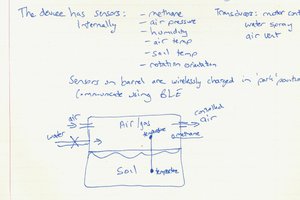 The device has sensors: - methane
internally - air pressure
- humidity
- air temp
- soil temp
- rotation orientation
Transducers: motor cont
water spray
air vent
Sensors on barrel are wirelessly charged in 'park' position
Communicate using BLE
air
water
Air/gas
temperature
controlled
air
methane
Soil
temperature